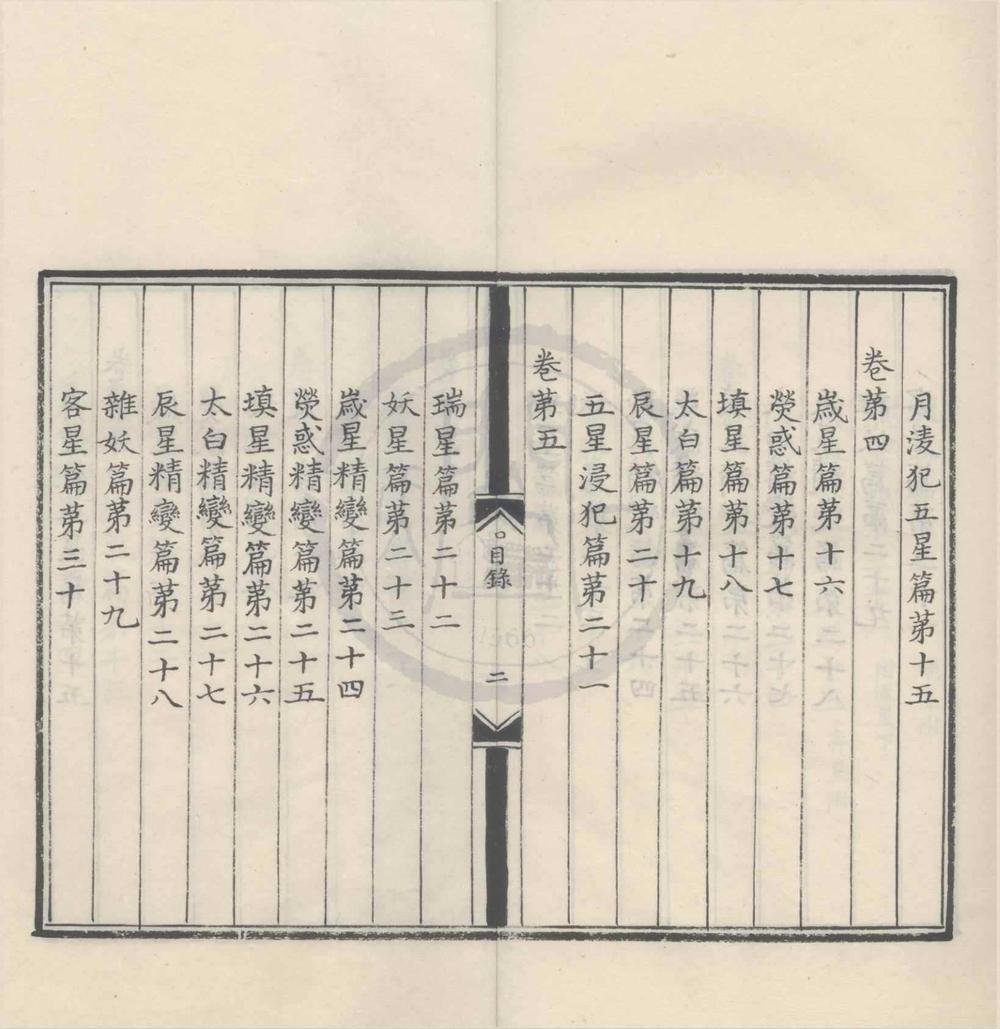 月淩犯五星篇第十五
卷第四
歲星篇第十六
熒惑篇第十七
填星篇第十八
太白篇第十九
辰星篇第二十
五星浸犯篇第二十一
卷第五
目錄
二
瑞星篇第二十二
妖星篇第二十三
歲星精變篇第二十四
熒惑精變篇第二十五
填星精變篇第二十六
太白精變篇第二十七
辰星精變篇第二十八
雜妖篇第二十九
客星篇第三十